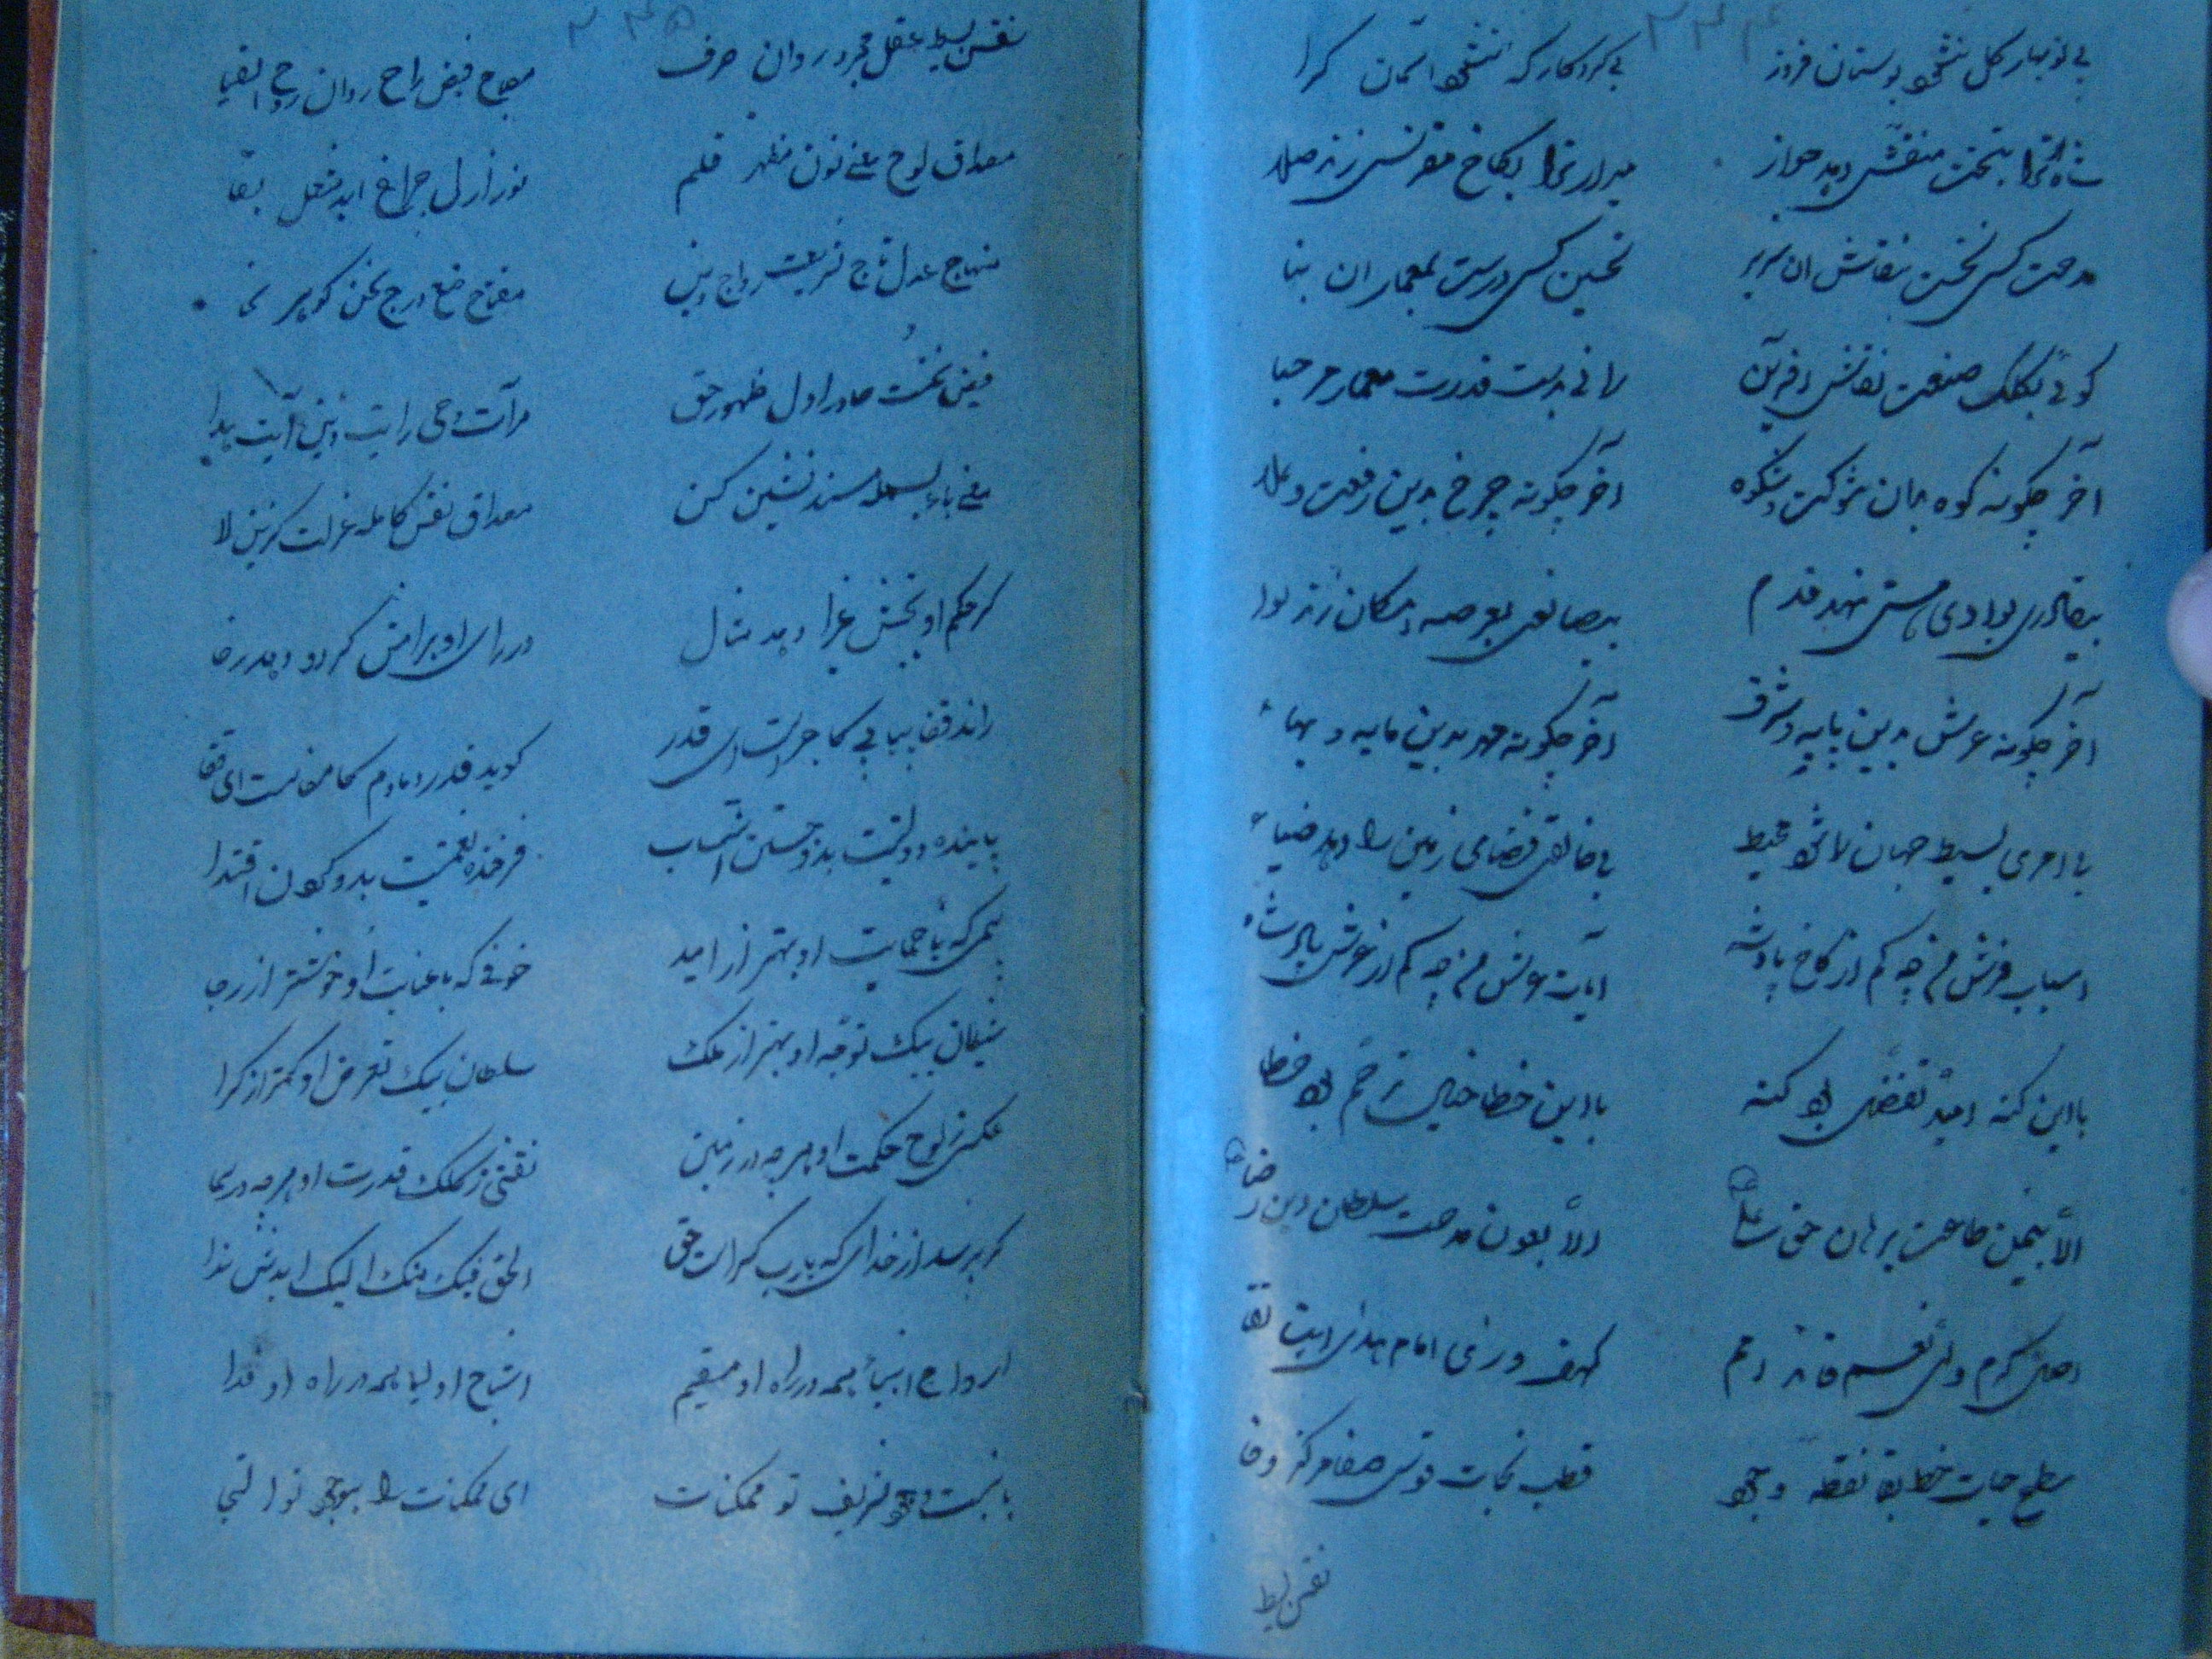 ۳۴۴
بی نوبهار گل نشود بوستان فروز بی کردگار که نشود آسمان گرا
مدحت کنی نخست بنقاش آن سریر تحسین کنی درست بمعمار آن بنا
گوئی بکلک صنعت نقاش آفرین رانی بدست قدرت معمار مرحبا
آخر چگونه کوه بدان شوکت و شکوه آخر چگونه چرخ بدین رفعت و علا
بیقادری بوادی هستی نهد قدم بیصانعی بعرصه امکان زند لوا
آخر چگونه عرش بدین پایه و شرف آخر چگونه مهر بدین مایه و بهاء
بی‌آمری بسیط جهان را شود محیط بی‌خالقی فضای زمین را دهد ضیاء
اسباب فرش من چه کم از کاخ پادشه آیات عرش من چه کم از عرش پادشاه
با این گنه امید تفضل بود گنه با این خطا خیال ترحم بود خطا
الا بیمن طاعت برهان حق الا بعون مدحت سلطان دین رضا
اصل کرم ولی نعم قائد امم کهف وری امام هدی آیت تقا
سطح حیات خط بقا نقطه وجود قطب نجات قوس صفا مرکز وفا
نفس بسیط
۳۴۵
نفس بسیط عقل مجرد روان صرف مصباح فیض راح روان روح اتقیا
مصداق لوح معنی نون مظهر قلم نور ازل چراغ ابد مشعل بقا
منهاج عدل تاج شریعت رواج دین مفتاح صنع درج سخن گوهر سخا
فیض نخست صادر اول ظهور حق مرآت وحی رایت دین آیت هدا
معنی باء بسمله مسندنشین کن مصداق نفس کامله عزلت گزین لا
گر حکم او بجنبش غبرا دهد مثال ور رای او برامش گردون دهد رضا
راند قضا بیاپی کما جریست ای قدر گوید قدر دمادم کامضاست ای قضا
پاینده دولتیست بدو جستن انتساب فرخنده نعمتیست بدو کردن اقتدا
بیمی که با حمایت او بهتر از امید خوفی که با عنایت او خوشتر از رجا
شیطان بیک توجه او بهتر از ملک سلطان بیک تعرض او کمتر از گدا
عکسی ز لوح حکمت او هرچه در زمین نقشی ز کلک قدرت او هرچه در سما
گر پرسد از خدای که یارب کراست حق الحق فیک منک الیک آیدش ندا
ارواح انبیا همه در راه او مقیم اشباح اولیا همه در راه او فدا
با نسبت وجود شریف تو ممکنات ای ممکنات را بوجود تو التجا